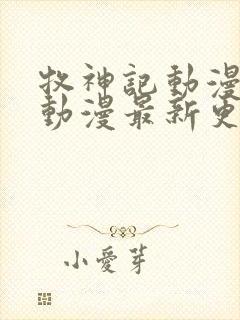 牧神記動漫
動漫最新更
小愛芽